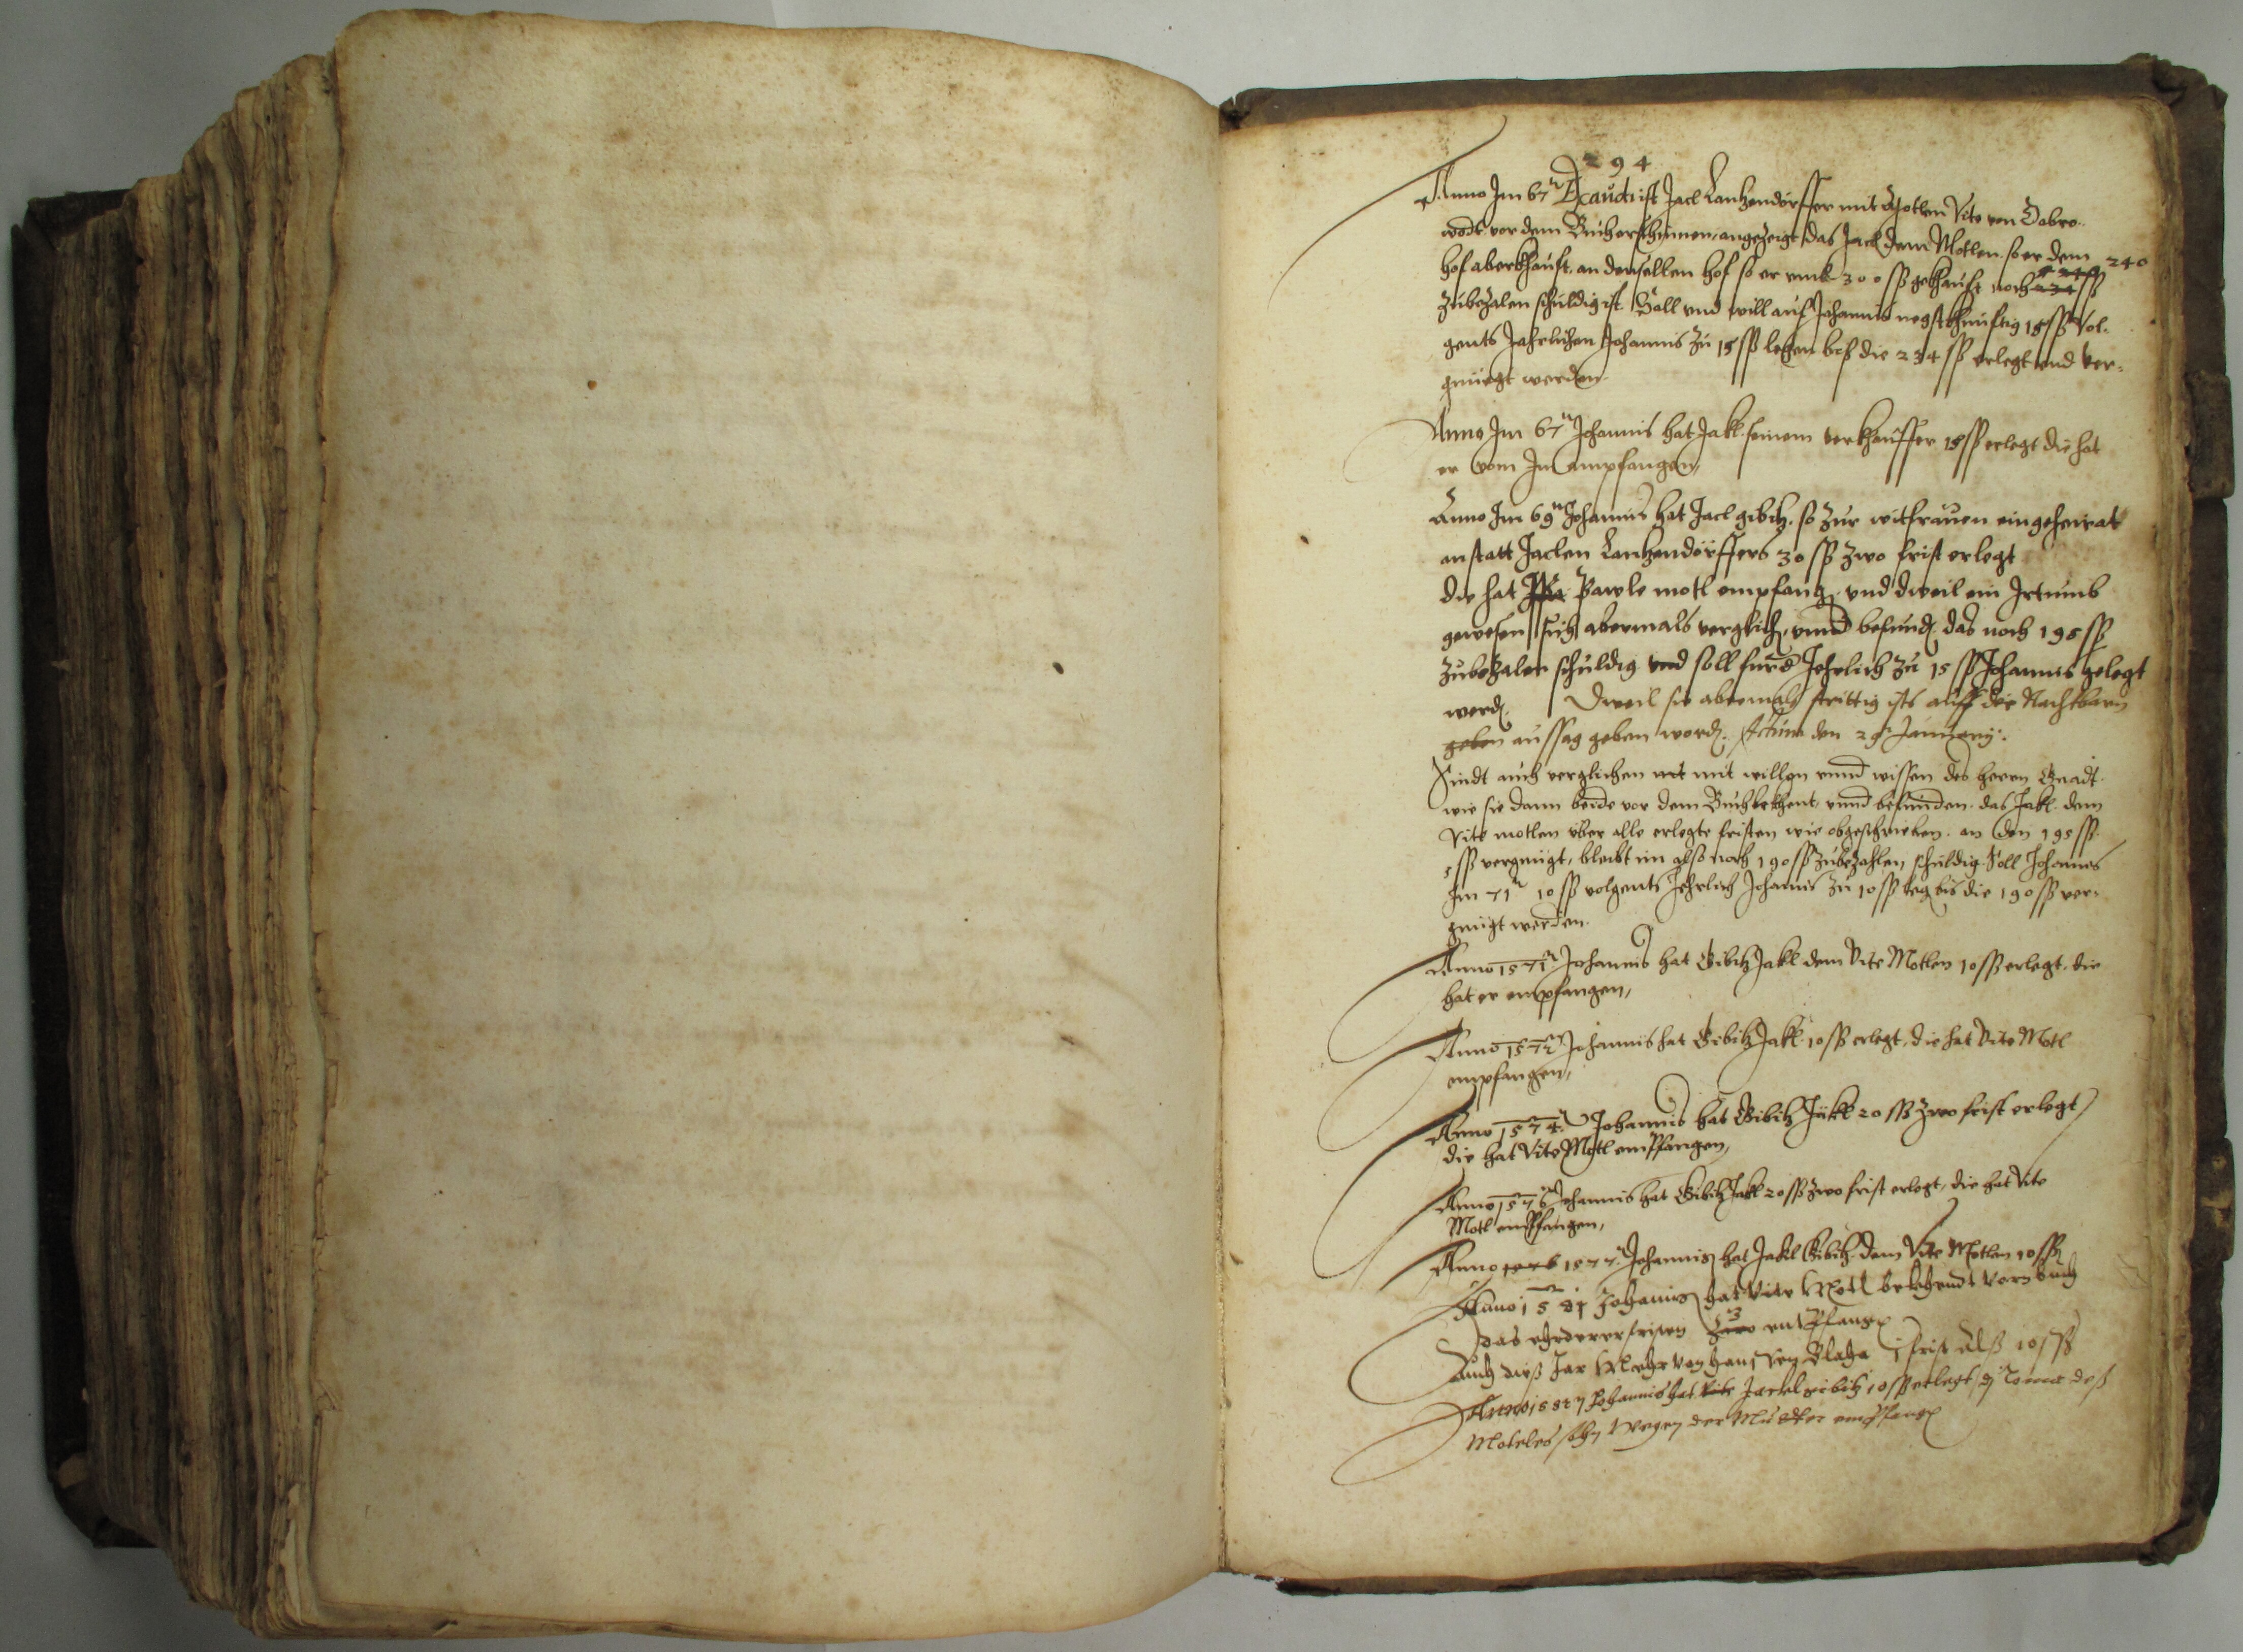 294
Anno Im 67ᵗⁿ Exaudi ist Jacl Lanzendörffer mit Motlen Vite von Dobro-
wodt vor dem Buch erschinnen, angezeigt das Jacl dem Motlen so er dem
hof aberkhauft, an denselben hof so er vmb 300 ß gekhauft noch 234 ß 240
zubezalen schuldig ist. Soll vnd will auf Johannis negstkhunftig 15 ß Vol-
gents Jahrlichen Johannis zu 15 ß legen biß die 234 ß erlegt vnd ver-
gnuegt werden.
Anno Im 67ᵗⁿ Johannis hat Jakl seinem verkhauffer 15 ß erlegt die hat
er vom Im empfangen,
Anno Im 69ᵗⁿ Johannis hat Jacl gibitz so zur witfrauen eingeheirat
anstatt Jaclen Lanzendörffers 30 ß zwo frist erlegt
die hat Pawle motl empfang. vnd dweil ein Irtumb
gewesen sich abermals verglich. vnnd befund. das noch 195 ß
zubezalen schuldig vnd soll furd Jehrlich zu 15 ß Johannis gelegt
werd. Dweil sie abermals strittig ists auff der Nachtbarn
geben aussag geben word. Actum den 29 January.
Sindt auch verglichen mit mit willen vnnd wissen des herrn Gnadt.
wie sie dann beide vor dem Buch bekhent, vnnd befunden das Jakl dem
Vite motlen über alle erlegte fristen wie obgeschrieben an den 195 ß
5 ß vergnügt, bleibt im also noch 190 ß zubezahlen schuldig. Soll Johannes
Im 71ᵗⁿ 10 ß volgents Jehrlich Johannis zu 10 ß leg. bis die 190 ß ver-
gnügt werden.
Anno 1571ᵗⁿ Johannis hat Gibitz Jakl dem Vite Motlen 10 ß erlegt, die
hat er empfangen,
Anno 1572ᵗⁿ Johannis hat Gibitz Jakl 10 ß erlegt, die hat Vite Motl
empfangen,
Anno 1574ᵗⁿ Johannis hat Gibitz Jäkl 20 ß zwo frist erlegt
die hat Vite Motl empfangen,
Anno 1576ᵗⁿ Johannis hat Gibitz Jakl 20 ß zwo frist erlegt, die hat Vite
Motl empfangen,
Anno 1576 1577. Johannis hat Jakl Gibitz dem Vite Motlen 10 ß
Anno 1581 Johannis hat Vite Motl bekhendt vorn buch
das ehr derer fristen zwo 3 entpfang.
Auch diß Jar Mehr von Hans von 1 frist Alß 10 ß
Anno 1582 Johannis hat Vite Jackl gibitz 10 ß erlegt, Toma deß
Moteles sohn wegen der Mutter empfang.